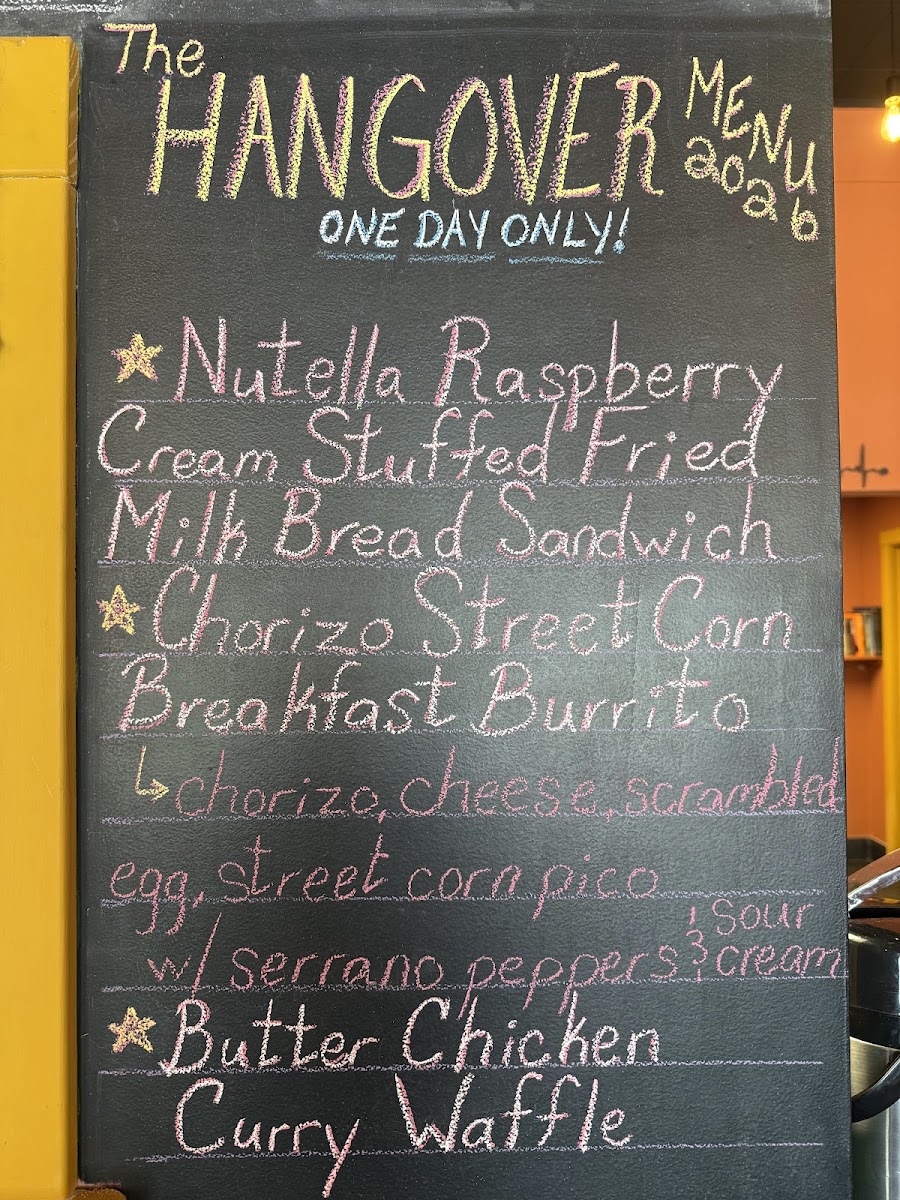 The
HANGOVER MENU
2026
ONE DAY ONLY!
Nutella Raspberry
Cream Stuffed Fried
Milk Bread Sandwich
Chorizo Street Corn
Breakfast Burrito
↳ chorizo, cheese, scrambled
egg, street corn pico
w/ serrano peppers & sour
cream
Butter Chicken
Curry Waffle